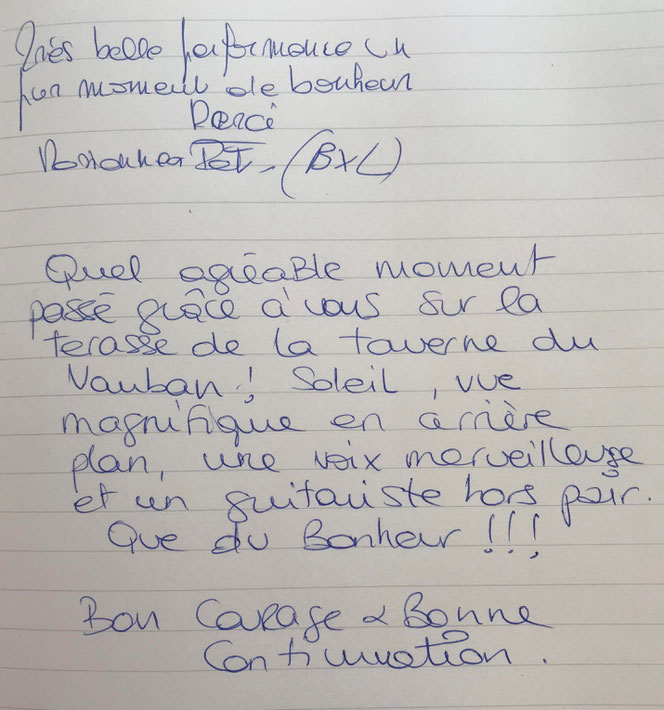 Très belle performance un
pur moment de bonheur
Merci
(BXL)
Quel agréable moment
passé grâce à vous sur la
terasse de la taverne du
Vauban ! Soleil, vue
magnifique en arrière
plan, une voix merveilleuse
et un guitariste hors pair.
Que du Bonheur !!!
Bon Courage & Bonne
Continuation.